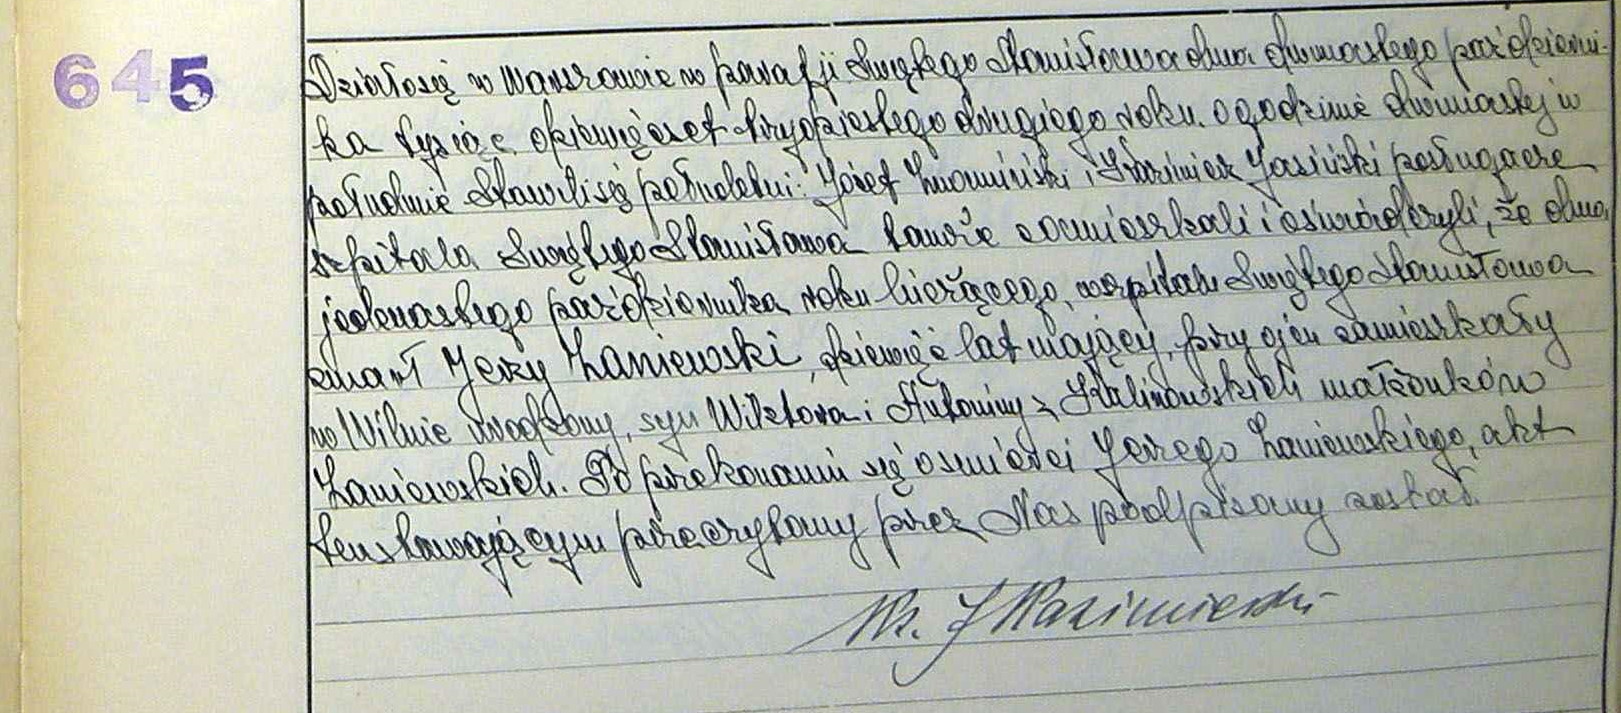 645
Działo się w Warszawie w parafji Świętego Stanisława dnia dwunastego październi-
ka tysiąc dziewięćset trzydziestego drugiego roku o godzinie dwunastej w
południe. Stawili się pełnoletni: Józef i Kazimierz Jasiński posługacze
szpitala Świętego Stanisława tamże zamieszkali i oświadczyli, że dnia
jedenastego października roku bieżącego, w szpitalu Świętego Stanisława
zmarł Jerzy Zaniewski, dziewięć lat mający, przy ojcu zamieszkały
w Wilnie urodzony, syn Wiktora i Antoniny z Kalinowskich małżonków
Zaniewskich. Po przekonaniu się o śmierci Jerzego Zaniewskiego, akt
ten stawającym przeczytany przez Nas podpisany został.
Ks. J Kazimierski